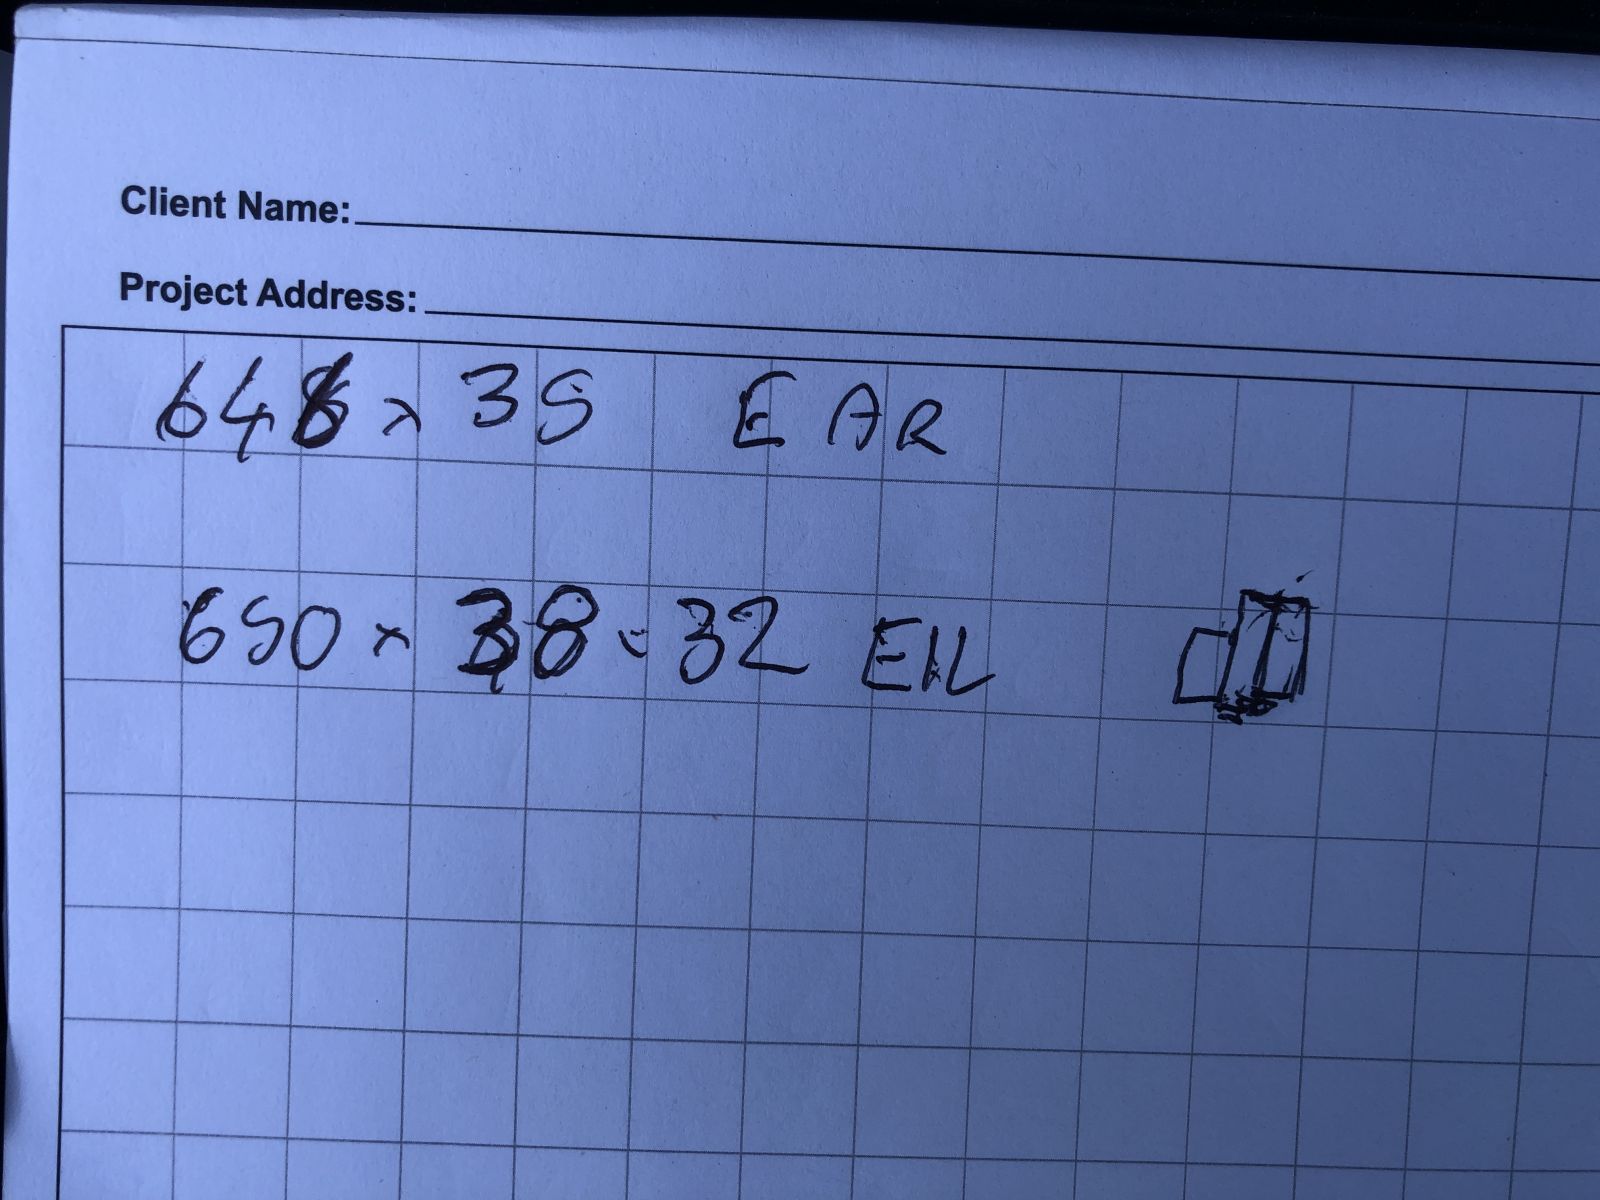 Client Name:
Project Address:
648 x 35 EAR
650 x 38 - 32